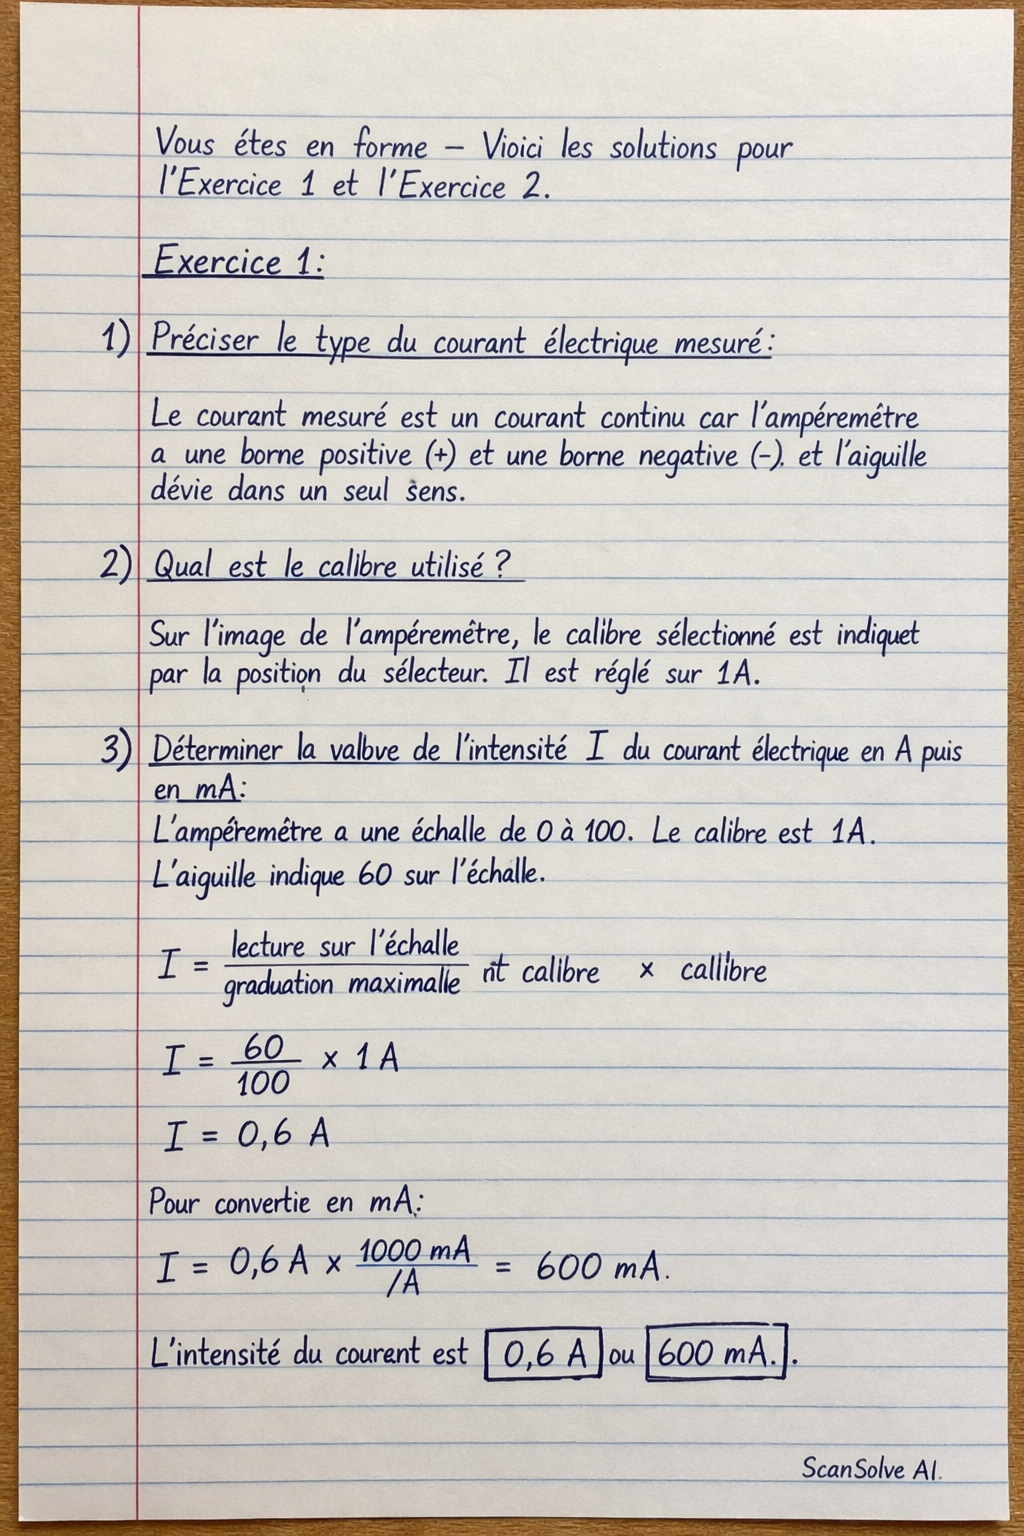 Vous étes en forme – Vioici les solutions pour
l'Exercice 1 et l'Exercice 2.
Exercice 1:
1) Préciser le type du courant électrique mesuré:
Le courant mesuré est un courant continu car l'ampéremêtre
a une borne positive (+) et une borne negative (-). et l'aiguille
dévie dans un seul sens.
2) Qual est le calibre utilisé ?
Sur l'image de l'ampéremêtre, le calibre sélectionné est indiquet
par la position du sélecteur. Il est réglé sur 1A.
3) Déterminer la valbve de l'intensité I du courant électrique en A puis
en mA:
L'ampéremêtre a une échalle de 0 à 100. Le calibre est 1A.
L'aiguille indique 60 sur l'échalle.
I = lecture sur l'échalle / graduation maximalle calibre × callibre
I = 60/100 × 1 A
I = 0,6 A
Pour convertie en mA:
I = 0,6 A × 1000 mA / /A = 600 mA.
L'intensité du courent est 0,6 A ou 600 mA. .
ScanSolve AI.